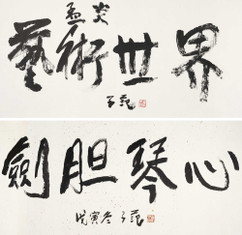 孟炎
藝術世界
子範
劍胆琴心
戊寅冬子範